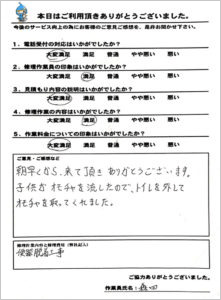 本日はご利用頂きありがとうございました。
今後のサービス向上の為にお客様のご意見ご感想を、是非お聞かせ下さい。
1. 電話受付の対応はいかがでしたか?
大変満足 満足 普通 やや悪い 悪い
2. 修理作業員の印象はいかがでしたか?
大変満足 満足 普通 やや悪い 悪い
3. 見積もり内容の説明はいかがでしたか?
大変満足 満足 普通 やや悪い 悪い
4. 修理作業の内容はいかがでしたか?
大変満足 満足 普通 やや悪い 悪い
5. 作業料金についての印象はいかがでしたか?
大変満足 満足 普通 やや悪い 悪い
ご意見・ご感想など
朝早くから、来て頂き ありがとうございます。
子供が オモチャを流したので、トイレを外して
オモチャを取ってくれました。
修理作業内容と修理費用(弊社記入)
便器脱着工事
ご協力ありがとうございました。
作業員氏名: